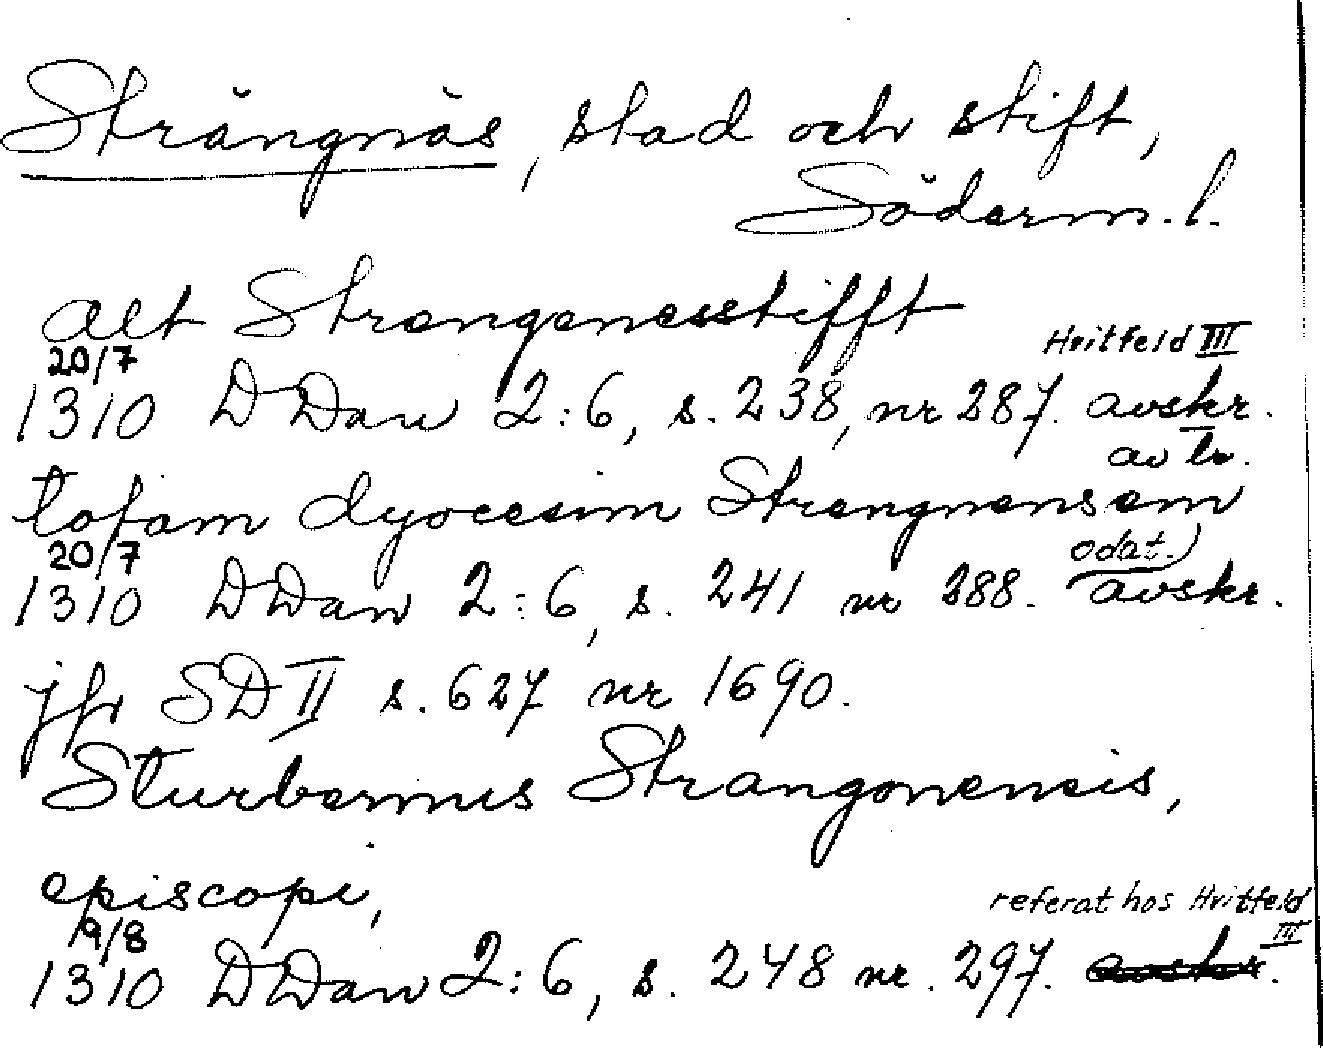 Strängnäs, stad och stift,
Söderm. l.
alt Strengenesstifft
20/7 Hvitfeld III
1310 DDan 2:6, s. 238, nr 287. avskr.
av tr.
totam dyocesim Strengnensem
20/7 odat.)
1310 DDan 2:6, s. 241 nr 288. avskr.
jfr SD II s. 627 nr 1690.
Sturbernus Strangonensis,
episcopi,
19/8 referat hos Hvitfeld
III
1310 DDan 2:6, s. 248 nr. 297. avskr.